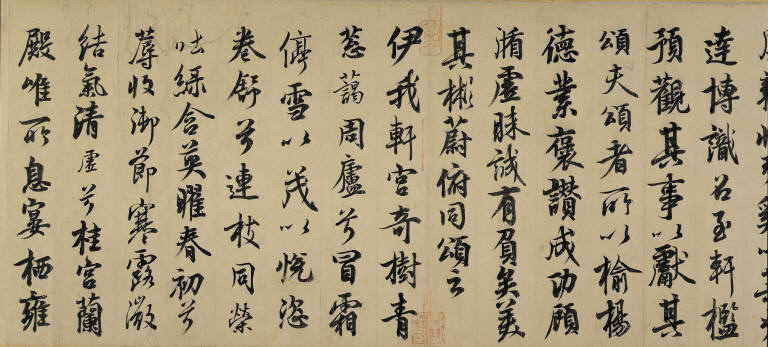 達博識召至軒檻
預觀其事以獻其
頌夫頌者所以揄揚
德業褒讚成功顧
循虛昧誠有負矣美
其彬蔚俯同頌云
伊我軒宮奇樹青
蔥藹周廬兮冒霜
停雪以茂以悅恣
卷舒兮連枝同榮
吐綠含英曜春初兮
蓐收御節寒露微
結氣清虛兮桂宮蘭
殿唯所息宴栖雍